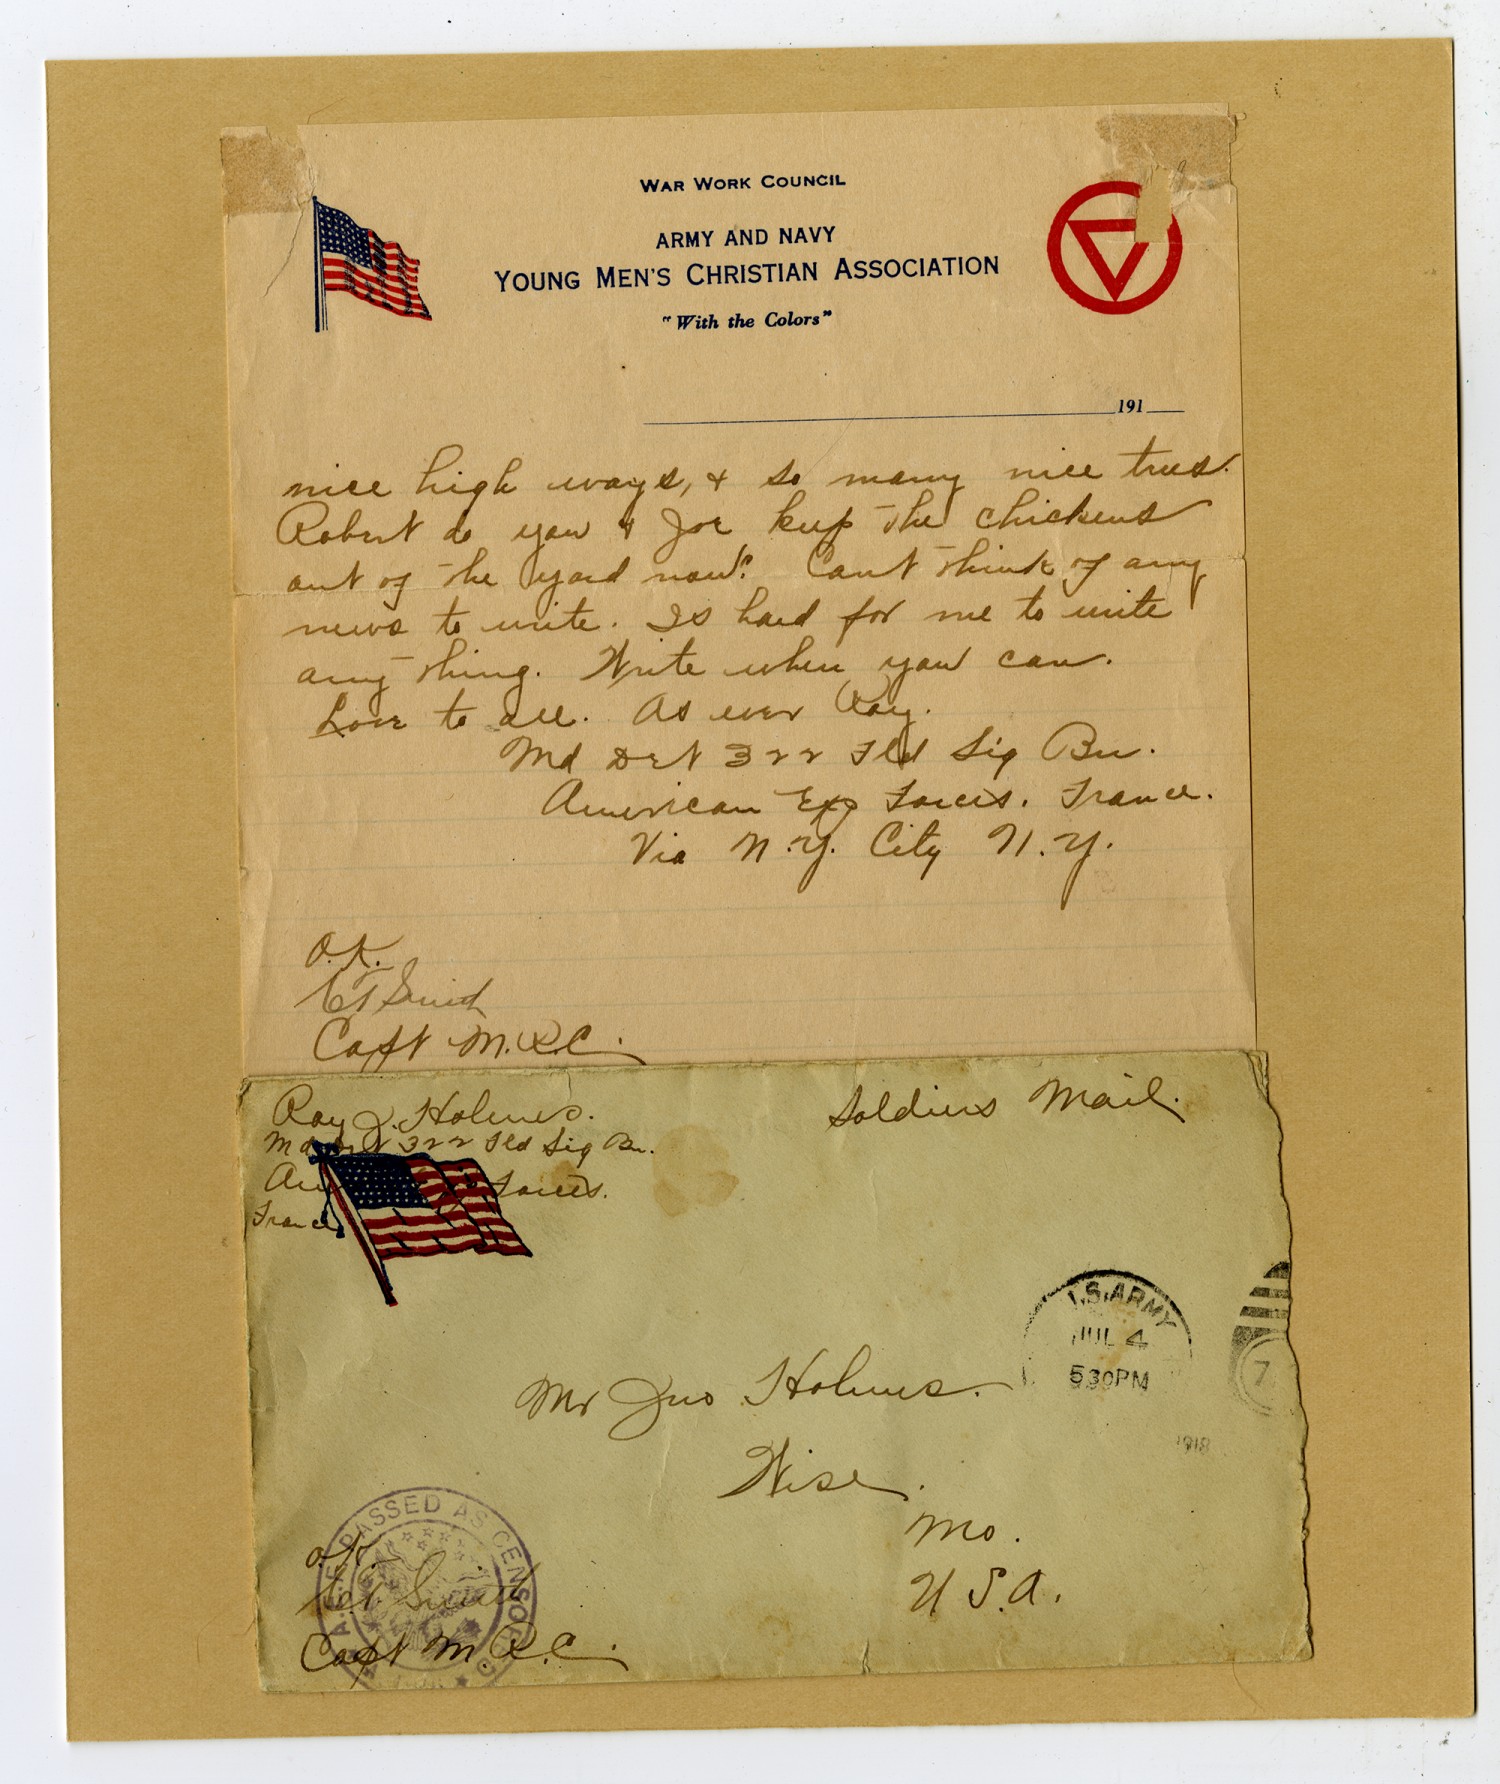 WAR WORK COUNCIL
ARMY AND NAVY
YOUNG MEN'S CHRISTIAN ASSOCIATION
"With the Colors"
191
nice high ways, & so many nice trees.
Robert do you & Joe keep the chickens
out of the yard now? Can't think of any
news to write. Is hard for me to write
any thing. Write when you can.
Love to all. As ever Ray.
Md Det 322 Fld Sig Bn.
American Exp Forces. France.
Via N.Y. City N.Y.
O.K.
Smith
Capt M.R.C.
Ray J. Holmes.
Md Det 322 Fld Sig Bn.
Forces.
France
Soldiers Mail.
U.S. ARMY
JUL 4
530PM
1918
7
Mr Jno Holmes.
Wise.
Mo.
U.S.A.
A.E.F. PASSED AS CENSORED
O.K.
Smith
Capt M.R.C.